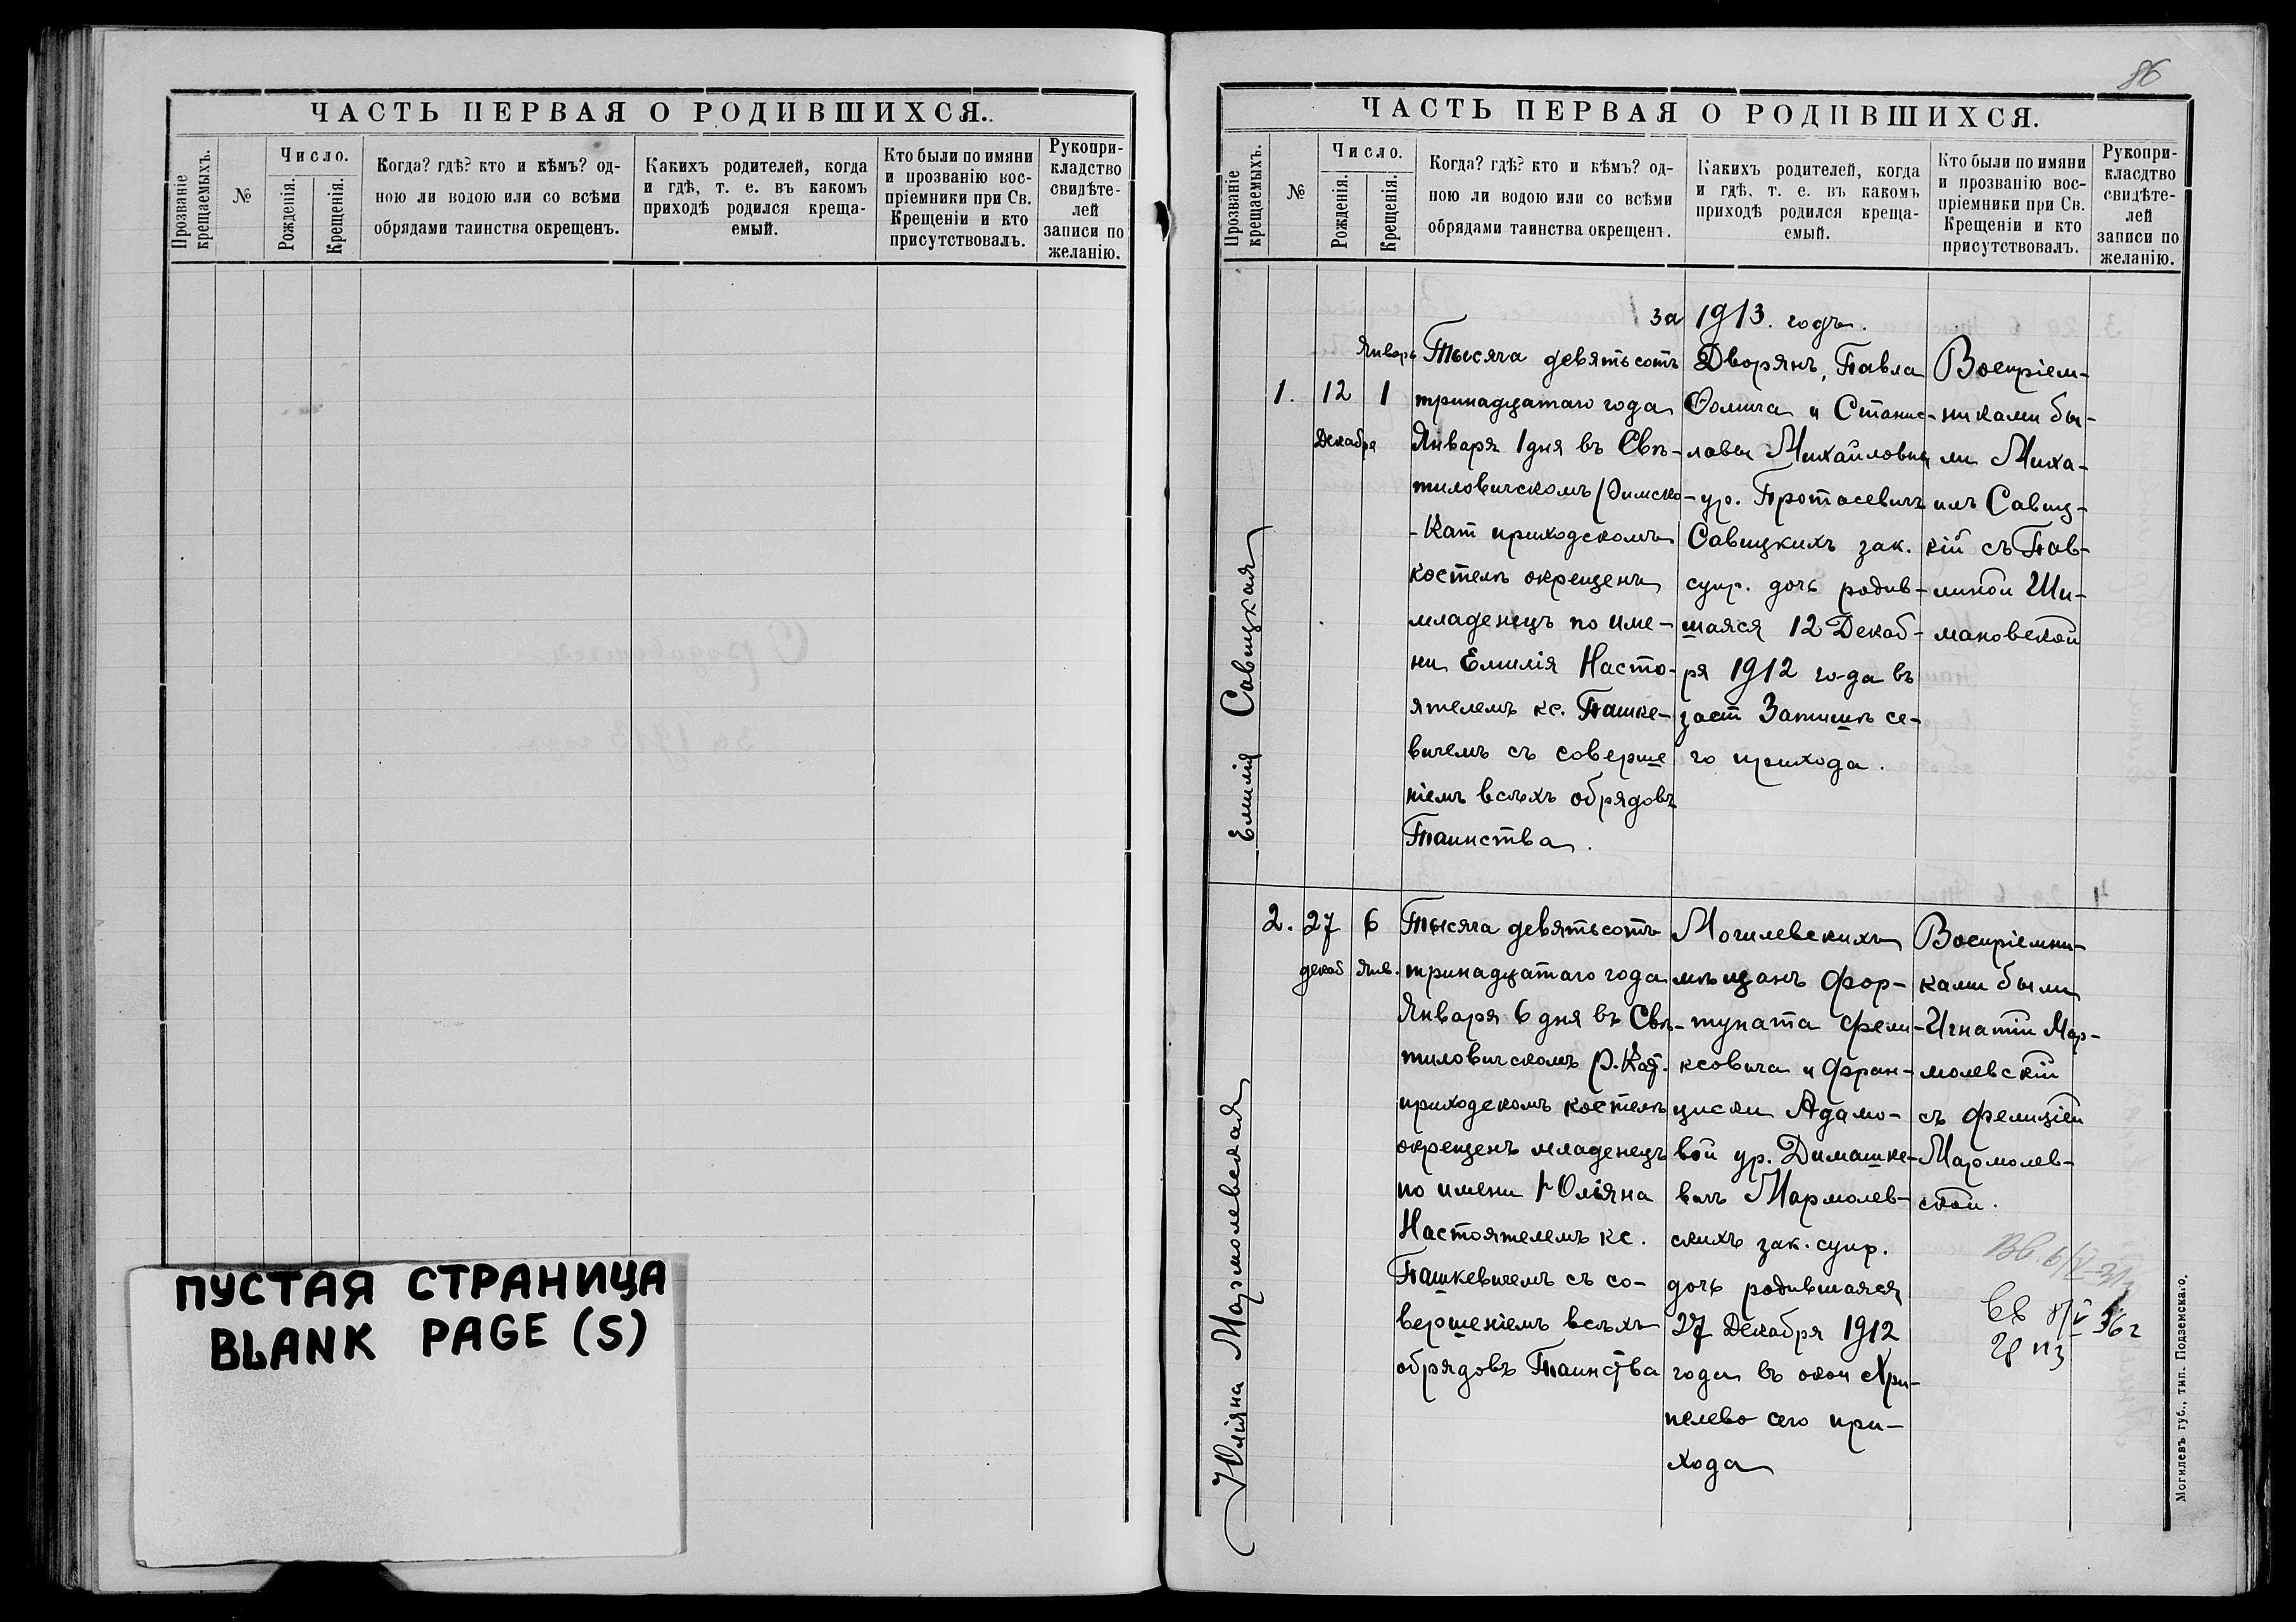 ЧАСТЬ ПЕРВАЯ О РОДИВШИХСЯ.
Прозваніе крещаемыхъ.
№
Число.
Рожденія.
Крещенія.
Когда? гдѣ? кто и кѣмъ? од-
ною ли водою или со всѣми
обрядами таинства окрещенъ.
Какихъ родителей, когда
и гдѣ, т. е. въ какомъ
приходѣ родился креща-
емый.
Кто были по имяни
и прозванію вос-
пріемники при Св.
Крещеніи и кто
присутствовалъ.
Рукопри-
кладство
свидѣте-
лей
записи по
желанію.
ПУСТАЯ СТРАНИЦА
BLANK PAGE (S)
86
ЧАСТЬ ПЕРВАЯ О РОДИВШИХСЯ.
Прозваніе крещаемыхъ.
№
Число.
Рожденія.
Крещенія.
Когда? гдѣ? кто и кѣмъ? од-
ною ли водою или со всѣми
обрядами таинства окрещенъ.
Какихъ родителей, когда
и гдѣ, т. е. въ какомъ
приходѣ родился креща-
емый.
Кто были по имяни
и прозванію вос-
пріемники при Св.
Крещеніи и кто
присутствовалъ.
Рукопри-
класдтво
свидѣте-
лей
записи по
желанію.
за 1913. годъ.
Емилія Савицкая
1.
12
Декабря
Январь
1
Тысяча девятьсотъ
тринадцатаго года
Января 1 дня въ Свѣ-
тиловичскомъ Римско-
-Кат приходскомъ
костелѣ окрещенъ
младенецъ по име-
ни Емилія Насто-
ятелемъ кс. Пашке-
вичемъ съ соверше
ніемъ всѣхъ обрядовъ
Таинства.
Дворянъ, Павла
Ѳомича и Станис-
лавы Михайловны
ур. Протасевичъ
Савицкихъ зак.
супр. дочь родив-
шаяся 12 Декаб-
ря 1912 го-да въ
заст Запишѣ се-
го прихода.
Воспріем-
никами бы-
ли Миха-
илъ Савиц-
кій съ Пав-
линой Ши-
мановской
Юліяна Мармолевская
2.
27
декаб
6
Янв.
Тысяча девятьсотъ
тринадцатаго года
Января 6 дня въ Свѣ-
тиловичскомъ Р. Кат.
приходскомъ костелѣ
окрещенъ младенецъ
по имени Юліяна
Настоятелемъ кс.
Пашкевичемъ съ со-
вершеніемъ всѣхъ
обрядовъ Таинства
Могилевскихъ
мѣщанъ Фор-
туната Фели-
ксовича и Фран-
циски Адамо-
вой ур. Димашке-
вичъ Мармолев-
скихъ зак. супр.
дочь родившаяся
27 Декабря 1912
года въ окол Хри-
пелево сего при-
хода
Воспріемни-
ками были
Игнатій Мар-
молевскій
съ Фелиціей
Мармолев-
ской.
Могилевъ губ., тип. Подземскаго.